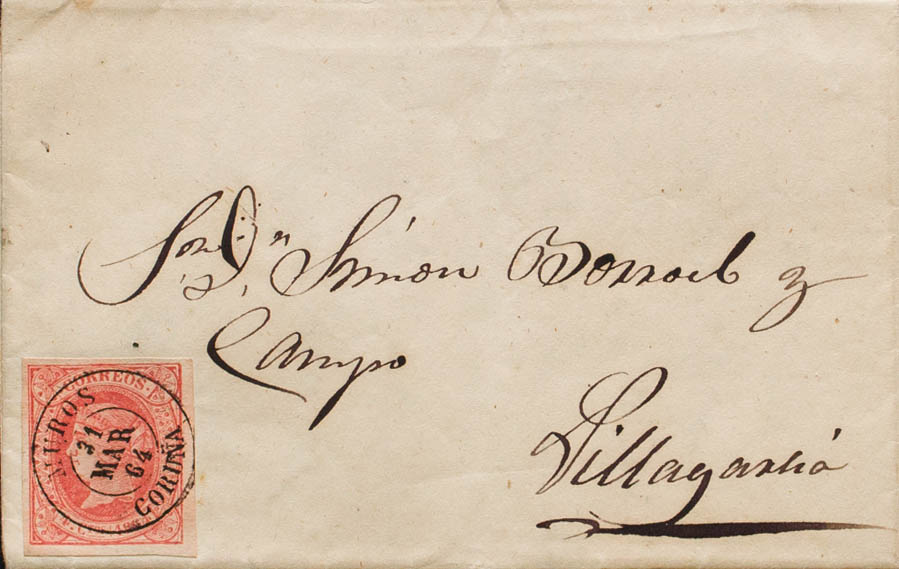 Sor Dn Simon Borrael y
Campo
Villagarcia
CORREOS
MUROS
31
MAR
64
CORUÑA